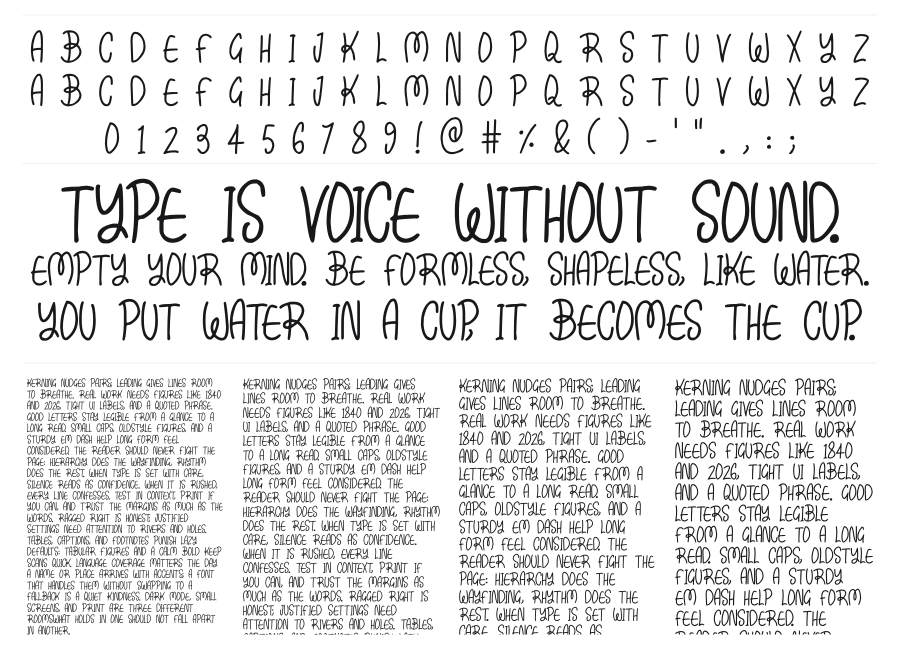 A B C D E F G H I J K L M N O P Q R S T U V W X Y Z
A B C D E F G H I J K L M N O P Q R S T U V W X Y Z
0 1 2 3 4 5 6 7 8 9 ! @ # % & ( ) - ' " . , : ;
TYPE IS VOICE WITHOUT SOUND.
EMPTY YOUR MIND. BE FORMLESS, SHAPELESS, LIKE WATER.
YOU PUT WATER IN A CUP, IT BECOMES THE CUP.
KERNING NUDGES PAIRS, LEADING GIVES LINES ROOM
TO BREATHE. REAL WORK NEEDS FIGURES LIKE 1840
AND 2026, TIGHT UI LABELS, AND A QUOTED PHRASE.
GOOD LETTERS STAY LEGIBLE FROM A GLANCE TO A
LONG READ. SMALL CAPS, OLDSTYLE FIGURES, AND A
STURDY EM DASH HELP LONG FORM FEEL
CONSIDERED. THE READER SHOULD NEVER FIGHT THE
PAGE: HIERARCHY DOES THE WAYFINDING, RHYTHM
DOES THE REST. WHEN TYPE IS SET WITH CARE,
SILENCE READS AS CONFIDENCE. WHEN IT IS RUSHED,
EVERY LINE CONFESSES. TEST IN CONTEXT, PRINT IF
YOU CAN, AND TRUST THE MARGINS AS MUCH AS THE
WORDS. RAGGED RIGHT IS HONEST; JUSTIFIED
SETTINGS NEED ATTENTION TO RIVERS AND HOLES.
TABLES, CAPTIONS, AND FOOTNOTES PUNISH LAZY
DEFAULTS: TABULAR FIGURES AND A CALM BOLD KEEP
SCANS QUICK. LANGUAGE COVERAGE MATTERS THE DAY
A NAME OR PLACE ARRIVES WITH ACCENTS: A FONT
THAT HANDLES THEM WITHOUT SWAPPING TO A
FALLBACK IS A QUIET KINDNESS. DARK MODE, SMALL
SCREENS, AND PRINT ARE THREE DIFFERENT
ROOMS;WHAT HOLDS IN ONE SHOULD NOT FALL APART
IN ANOTHER.
KERNING NUDGES PAIRS, LEADING GIVES
LINES ROOM TO BREATHE. REAL WORK
NEEDS FIGURES LIKE 1840 AND 2026, TIGHT
UI LABELS, AND A QUOTED PHRASE. GOOD
LETTERS STAY LEGIBLE FROM A GLANCE
TO A LONG READ. SMALL CAPS, OLDSTYLE
FIGURES, AND A STURDY EM DASH HELP
LONG FORM FEEL CONSIDERED. THE
READER SHOULD NEVER FIGHT THE PAGE:
HIERARCHY DOES THE WAYFINDING, RHYTHM
DOES THE REST. WHEN TYPE IS SET WITH
CARE, SILENCE READS AS CONFIDENCE.
WHEN IT IS RUSHED, EVERY LINE
CONFESSES. TEST IN CONTEXT, PRINT IF
YOU CAN, AND TRUST THE MARGINS AS
MUCH AS THE WORDS. RAGGED RIGHT IS
HONEST; JUSTIFIED SETTINGS NEED
ATTENTION TO RIVERS AND HOLES. TABLES,
KERNING NUDGES PAIRS, LEADING
GIVES LINES ROOM TO BREATHE.
REAL WORK NEEDS FIGURES LIKE
1840 AND 2026, TIGHT UI LABELS,
AND A QUOTED PHRASE. GOOD
LETTERS STAY LEGIBLE FROM A
GLANCE TO A LONG READ. SMALL
CAPS, OLDSTYLE FIGURES, AND A
STURDY EM DASH HELP LONG
FORM FEEL CONSIDERED. THE
READER SHOULD NEVER FIGHT THE
PAGE: HIERARCHY DOES THE
WAYFINDING, RHYTHM DOES THE
REST. WHEN TYPE IS SET WITH
CARE, SILENCE READS AS
KERNING NUDGES PAIRS,
LEADING GIVES LINES ROOM
TO BREATHE. REAL WORK
NEEDS FIGURES LIKE 1840
AND 2026, TIGHT UI LABELS,
AND A QUOTED PHRASE. GOOD
LETTERS STAY LEGIBLE
FROM A GLANCE TO A LONG
READ. SMALL CAPS, OLDSTYLE
FIGURES, AND A STURDY
EM DASH HELP LONG FORM
FEEL CONSIDERED. THE